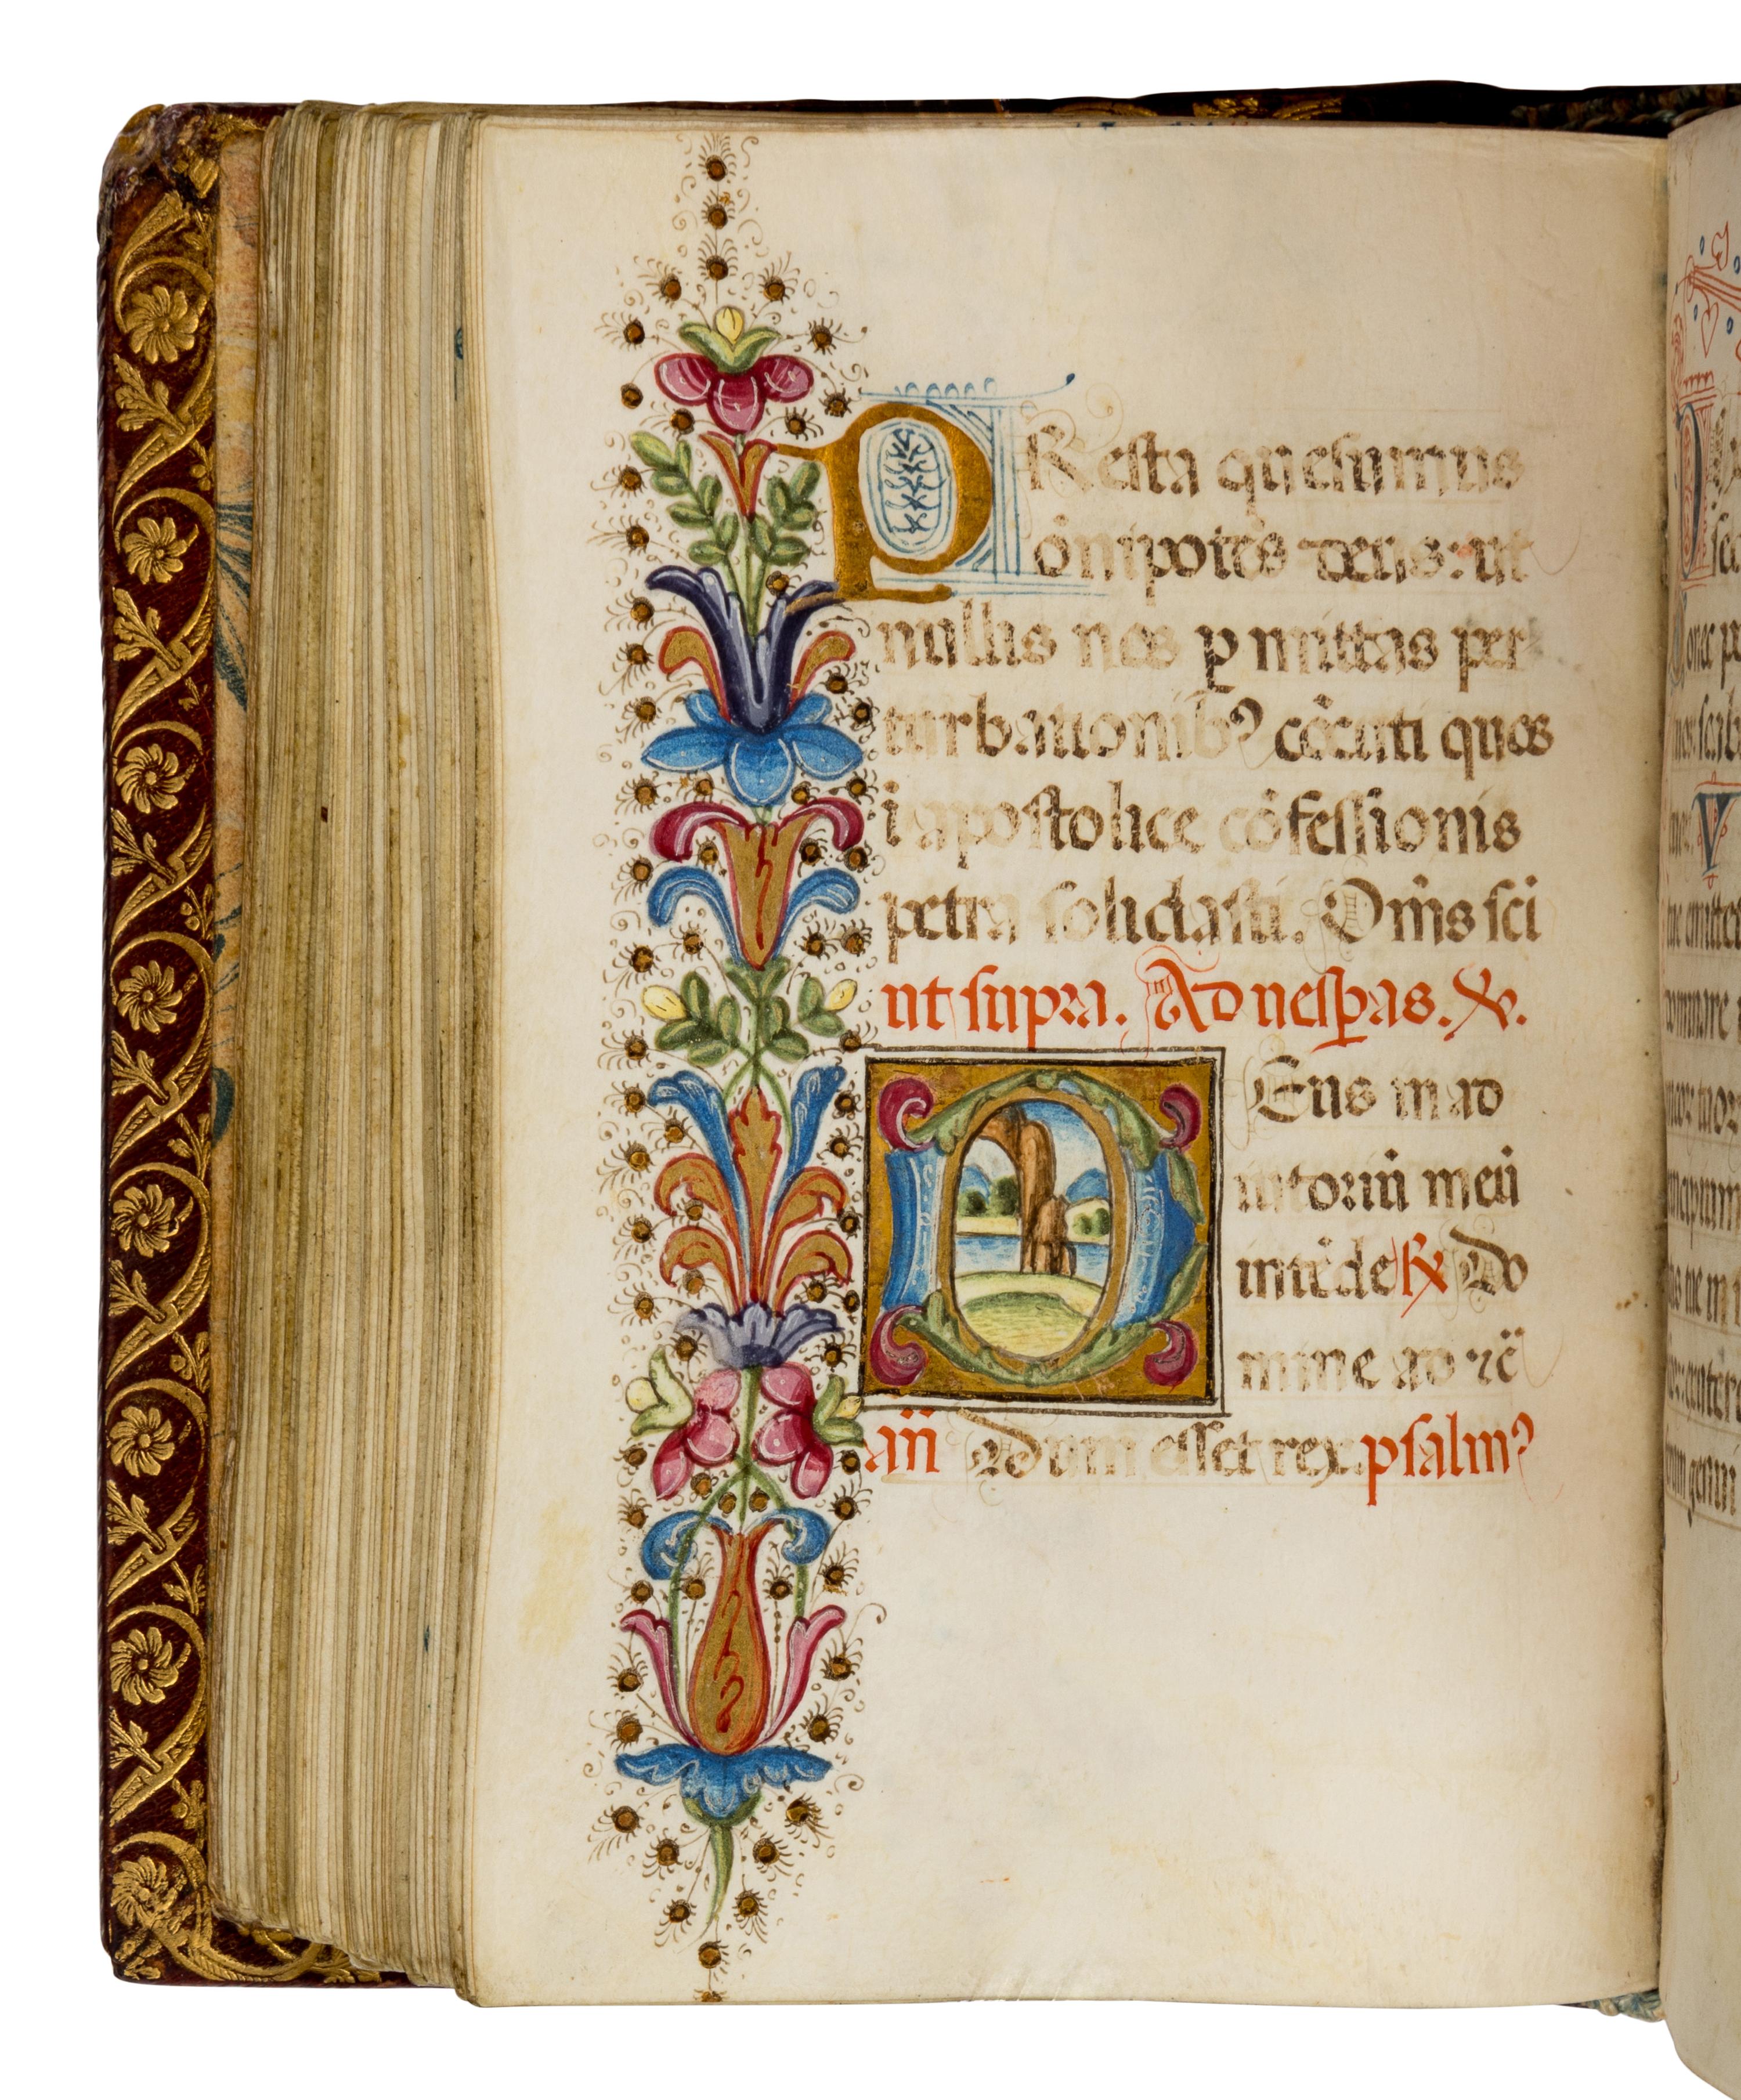 PResta quesumus
õnipotẽs deus: ut
nullis nos ꝑmittas per
turbationibꝰ cõcuti quos
i apostolice cõfessionis
petra solidasti. Om̃s sci
ut supra. Ad uesꝑas. ℣.
DEus in ad
iutoriũ meũ
intẽde ℟ Do
mine ad ⁊c̃
añ Dum esset rex. psalmꝰ